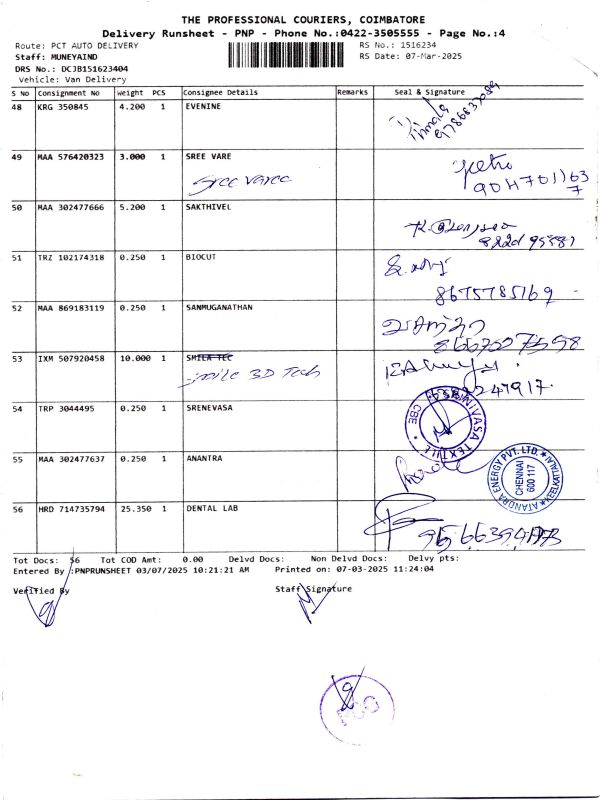 THE PROFESSIONAL COURIERS, COIMBATORE
Delivery Runsheet - PNP - Phone No.:0422-3505555 - Page No.:4
Route: PCT AUTO DELIVERY RS No.: 1516234
Staff: MUNEYAIND RS Date: 07-Mar-2025
DRS No.: DCJB151623404
Vehicle: Van Delivery
S No Consignment No Weight PCS Consignee Details Remarks Seal & Signature
48 KRG 350845 4.200 1 EVENINE
49 MAA 576420323 3.000 1 SREE VARE
Sree Varee
9047011637
50 MAA 302477666 5.200 1 SAKTHIVEL
51 TRZ 102174318 0.250 1 BIOCUT
8675785169
52 MAA 869183119 0.250 1 SANMUGANATHAN
53 IXM 507920458 10.000 1 SMILA TEC
3D Tech
54 TRP 3044495 0.250 1 SRENEVASA
CBE
55 MAA 302477637 0.250 1 ANANTRA
ATANDRA ENERGY PVT. LTD. KEELKATTALAI
CHENNAI
600 117
56 HRD 714735794 25.350 1 DENTAL LAB
Tot Docs: 56 Tot COD Amt: 0.00 Delvd Docs: Non Delvd Docs: Delvy pts:
Entered By :PNPRUNSHEET 03/07/2025 10:21:21 AM Printed on: 07-03-2025 11:24:04
Verified By Staff Signature